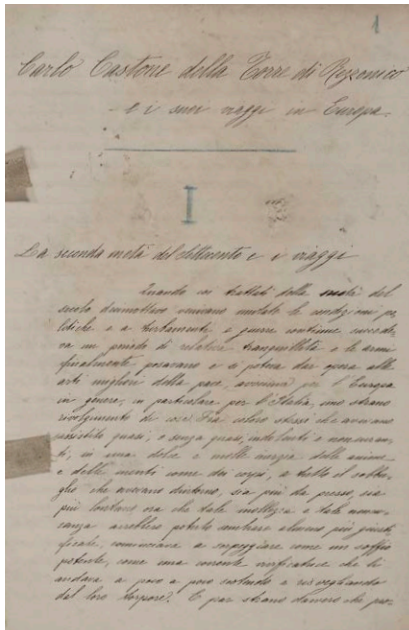 1
Carlo Castone della Torre di Rezzonico
e i suoi viaggi in Europa.
I
La seconda metà del Settecento e i viaggi
Quando coi trattati della metà del
secolo decimottavo vennero mutate le condizioni po-
litiche e a turbamenti e guerre continue succede-
va un periodo di relativa tranquillità e le armi
finalmente posavano e si poteva dar opera alle
arti migliori della pace, avveniva per l'Europa
in genere, in particolare per l'Italia, uno strano
rivolgimento di cose. Fra coloro stessi che avevano
assistito, quasi, e senza quasi, indolenti e noncuran-
ti, in una dolce e molle inerzia delle anime
e delle menti come dei corpi, a tutto il
che avevano dintorno, sia più da presso, sia
più lontano, ora che tale mollezza e tale
avrebbe potuto sembrare almeno più giusti-
ficata, cominciava a serpeggiare come un soffio
potente, come una corrente vivificatrice che li
andava a poco a poco scotendo e risvegliando
dal loro torpore. E par strano davvero che